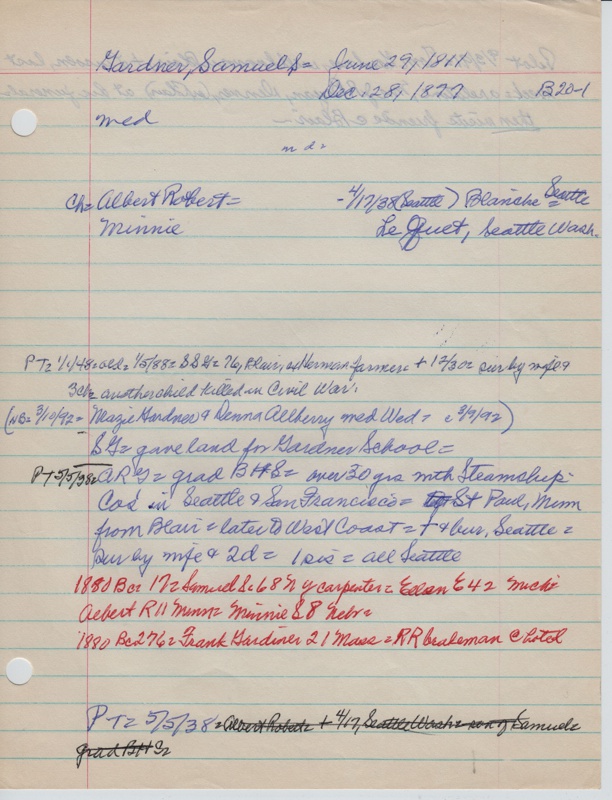 Gardner, Samuel S= June 29, 1811
Dec. 28, 1877 B20-1
med
m d=
Ch= Albert Robert= -4/17/38(Seattle) Blanche Seattle=
Minnie Le Quet, Seattle Wash.
PT= 1/1/48=old= 1/5/88= SSG= 76, Blair, Herman farmer + 12/30= sur by wife &
3ch= another child killed in Civil War.
(NB= 3/10/92= Mazie Gardner & Denna Allberry med Wed= c 3/9/92)
SG= gave land for Gardner School=
PT=5/5/38= ARG= grad BHS= over 30 yrs with Steamship
Cos in Seattle & San Francisco= St Paul, Minn
from Blair= later to West Coast= + & bur, Seattle=
sur by wife & 2d= 1 sis= all Seattle
1880 Bc= 17= Samuel S= 68 N Y carpenter= Ellen E 42 Mich=
Albert R 11 Minn= Minnie L 8 Nebr=
1880 Bc276= Frank Gardiner 21 Mass= RR brakeman @ hotel
PT= 5/5/38= Albert Robert= + 4/17, Seattle Wash= son of Samuel=
grad BHS=